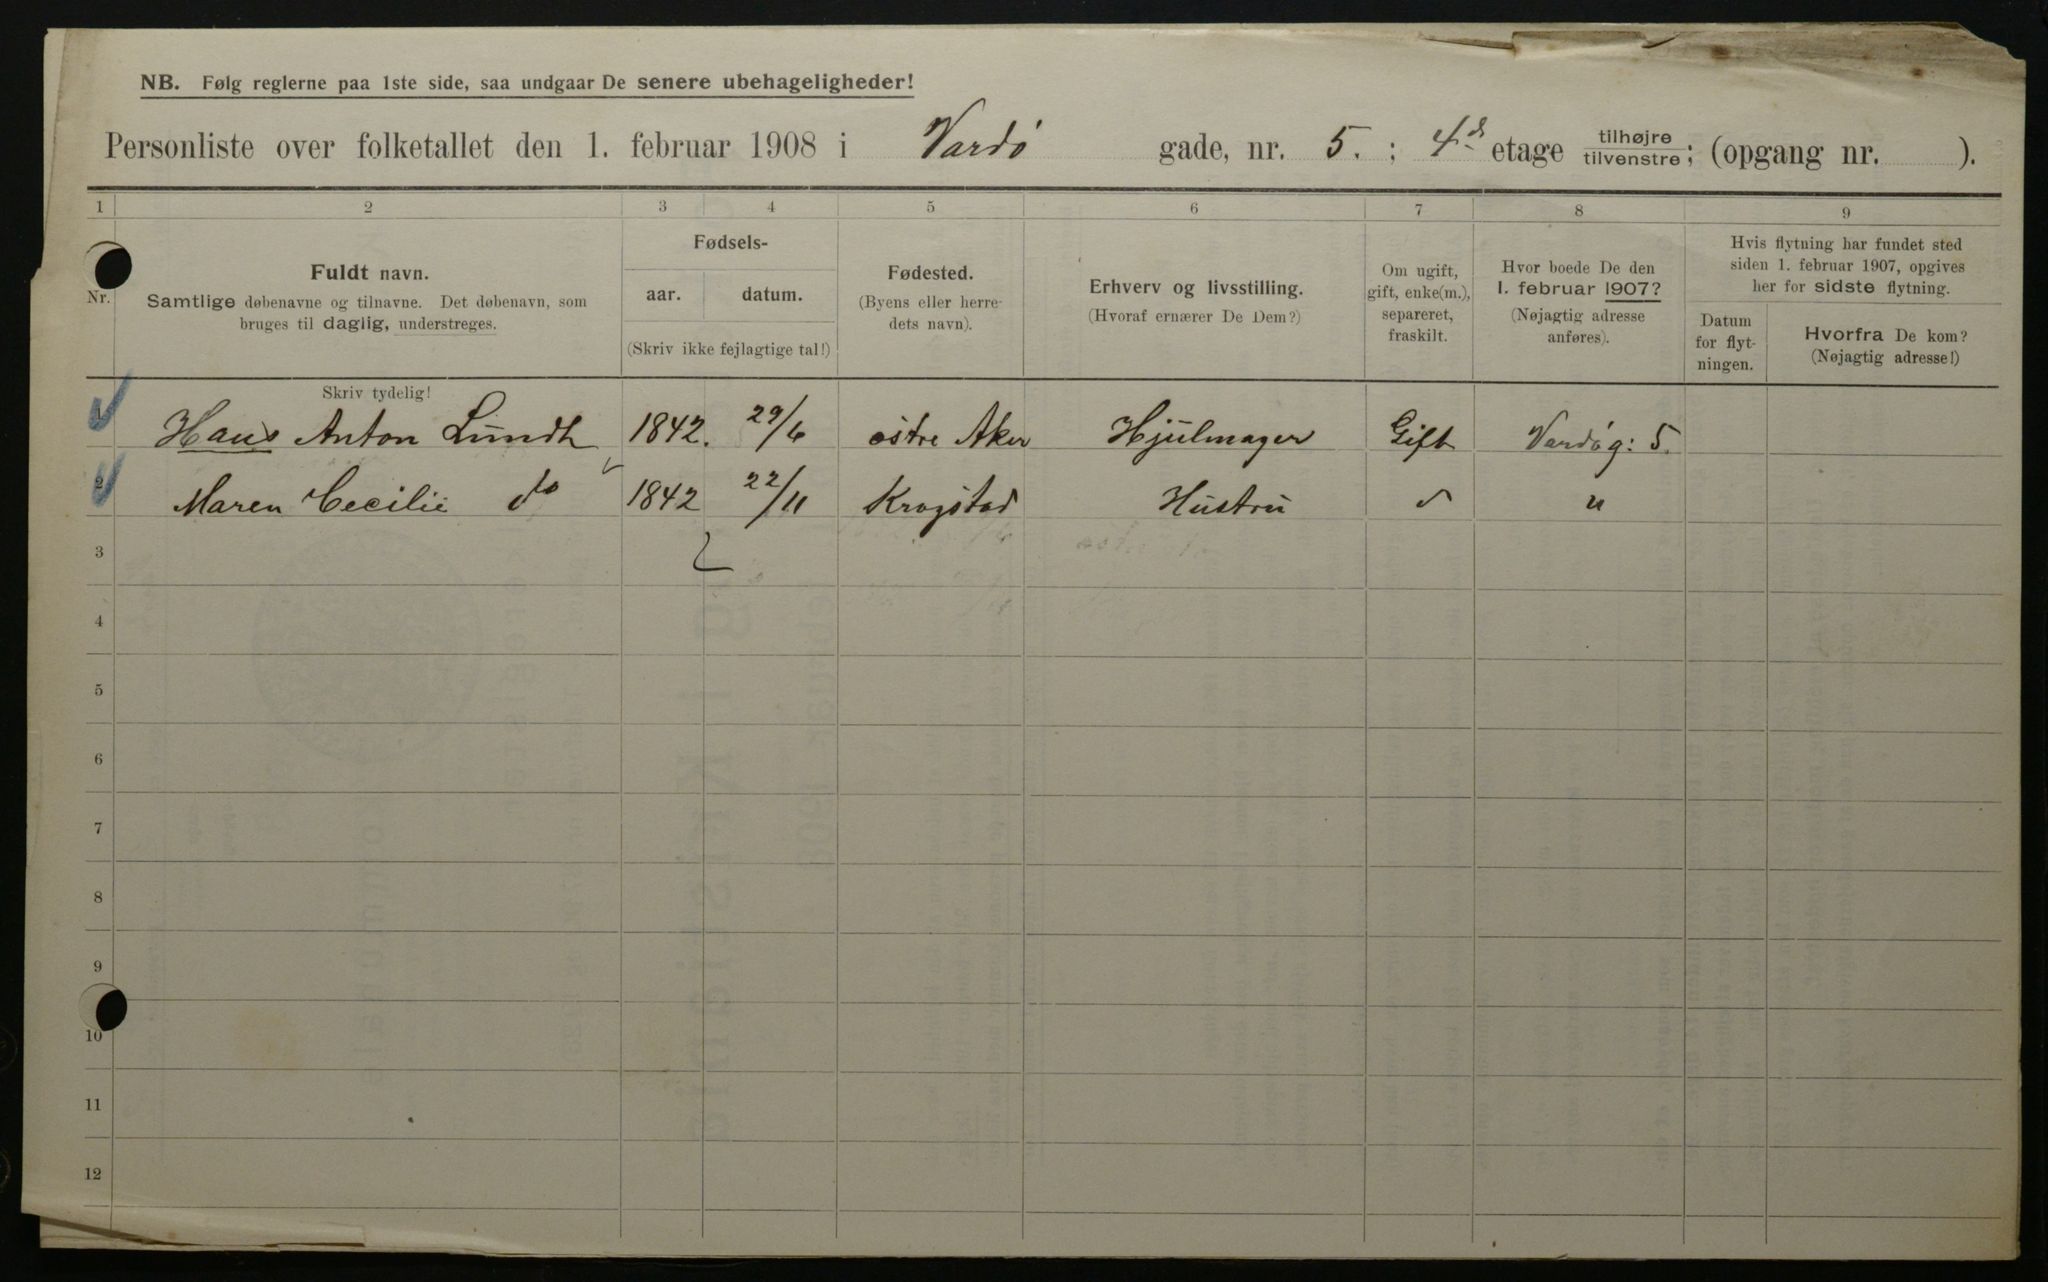 NB. Følg reglerne paa 1ste side, saa undgaar De senere ubehageligheder!
Personliste over folketallet den 1. februar 1908 i Vardø gade, nr. 5. ; 4d etage tilhøjre tilvenstre; (opgang nr. ).
1 2 3 4 5 6 7 8 9
Nr.
Fuldt navn.
Samtlige døbenavne og tilnavne. Det døbenavn, som
bruges til daglig, understreges.
Fødsels-
aar. datum.
(Skriv ikke fejlagtige tal!)
Fødested.
(Byens eller herre-
dets navn).
Erhverv og livsstilling.
(Hvoraf ernærer De Dem?)
Om ugift,
gift, enke(m.),
separeret,
fraskilt.
Hvor boede De den
1. februar 1907?
(Nøjagtig adresse
anføres).
Hvis flytning har fundet sted
siden 1. februar 1907, opgives
her for sidste flytning.
Datum
for flyt-
ningen.
Hvorfra De kom?
(Nøjagtig adresse!)
Skriv tydelig!
1 Hans Anton Lundh 1842. 29/6 østre Aker Hjulmager Gift Vardøg: 5.
2 Maren Cecilie do 1842 22/11 Krogstad Hustru " "
3
4
5
6
7
8
9
10
11
12